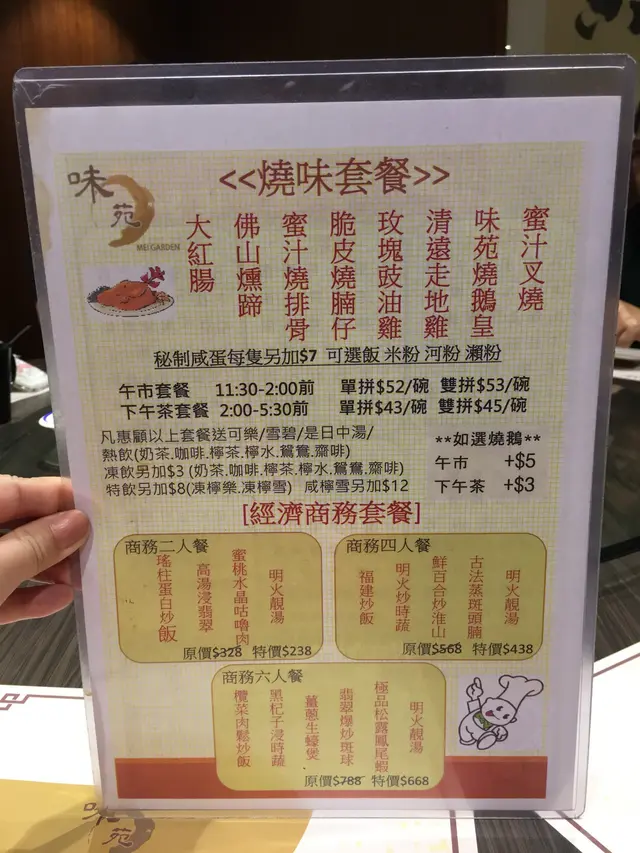 味
苑
MEI GARDEN
<<燒味套餐>>
蜜汁叉燒
味苑燒鵝皇
清遠走地雞
玫瑰豉油雞
脆皮燒腩仔
蜜汁燒排骨
佛山燻蹄
大紅腸
秘制咸蛋每隻另加$7 可選飯 米粉 河粉 瀨粉
午市套餐 11:30-2:00前 單拼$52/碗 雙拼$53/碗
下午茶套餐 2:00-5:30前 單拼$43/碗 雙拼$45/碗
凡惠顧以上套餐送可樂/雪碧/是日中湯/
熱飲(奶茶.咖啡.檸茶.檸水.鴛鴦.齋啡)
凍飲另加$3 (奶茶.咖啡.檸茶.檸水.鴛鴦.齋啡)
特飲另加$8(凍檸樂.凍檸雪) 咸檸雪另加$12
**如選燒鵝**
午市 +$5
下午茶 +$3
[經濟商務套餐]
商務二人餐
明火靚湯
蜜桃水晶咕嚕肉
高湯浸翡翠
瑤柱蛋白炒飯
原價$328 特價$238
商務四人餐
明火靚湯
古法蒸斑頭腩
鮮百合炒淮山
明火炒時蔬
福建炒飯
原價$568 特價$438
商務六人餐
明火靚湯
極品松露鳳尾蝦
翡翠爆炒斑球
薑蔥生蠔煲
黑杞子浸時蔬
欖菜肉鬆炒飯
原價$788 特價$668
味
苑